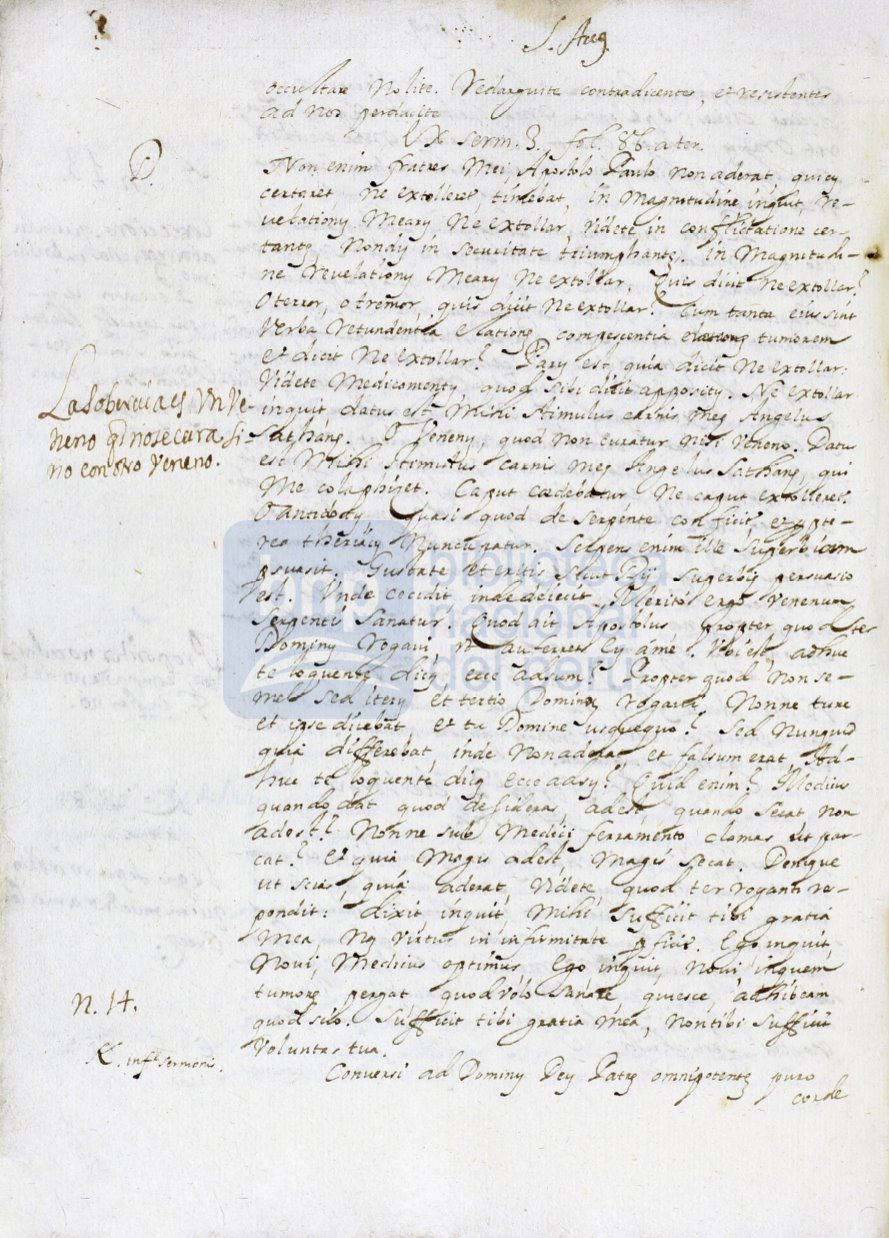 S. Aug
occultare Nolite. Redarguite contradicentes, et resistentes
ad nos perducite
Ex Serm. 3. fol. 86. a ter.
D.
Non enim fratres Mei Apostolo Paulo non aderat, qui cū
certaret Ne extolleret, timebat, in Magnitudine inquit, re-
velationū Mearū Ne extollar, videte in conflictatione cer-
tantē, Nondū in securitate triumphantē. in Magnitudi-
ne revelationū Mearū Ne extollar, Quis dicit Ne extollar?
O terror, o tremor, quis dicit Ne extollar? Cum tanta eius sint
Verba retundentia elationē, compescentia tumorem
et dicit Ne extollar? Parū est quia dicit Ne extollar:
Videte Medicamentū quod sibi dicit appositū. Ne extollar
inquit datus est Mihi Stimulus carnis meę Angelus
Sathanę. O Venenū, quod non curatur nisi Veneno. Datus
La soberuia es Un Ve-
neno q̄ no se cura si-
no con otro Veneno.
est Mihi Stimulus carnis meę Angelus Sathanę, qui
Me colaphizet. Caput cædebatur Ne caput extolleret.
O antidotū Quasi quod de Serpente conficit, et ppte-
rea theriacū Nuncupatur. Serpens enim ille Superbiam
psuasit. Gustate et eritis sicut Dij, superbię persuasio
est. Unde cecidit inde deiecit, Merito ergo venenum
Serpentis Sanatur. Quod ait Apostolus propter quod ter
Dominū rogavi, ut auferret eū a me. Ubi est, adhuc
te loquente dicā, ecce adsum? Propter quod Non se-
mel sed iterū, et tertio Dominū rogavi, Nonne tunc
et ipse dicebat et tu Domine usquequo? Sed Nunquid
quia differebat, inde Non aderat, et falsum erat, Ad-
huc te loquente, dicā ecce adsū? Quid enim? Medicus
quando dat quod desideras adest, quando Secat non
adest? Nonne sub Medici ferramento clamas ut par-
cat? Et quia Magis adest, Magis secat. Denique
ut scias quia aderat, Videte quod ter roganti res-
pondit: dixit inquit Mihi Sufficit tibi gratia
Mea, Nā virtus in infirmitate pficit. Ego inquit
Novi, Medicus optimus Ego inquit, Novi inquem
tumorē pergat quod volo Sanare, quiesce, adhibeam
quod scio. Sufficit tibi gratia mea, non tibi sufficit
Voluntas tua.
N. 14.
in fi. Sermonis.
Conversi ad Dominū Deū Patrē omnipotentē puro
corde